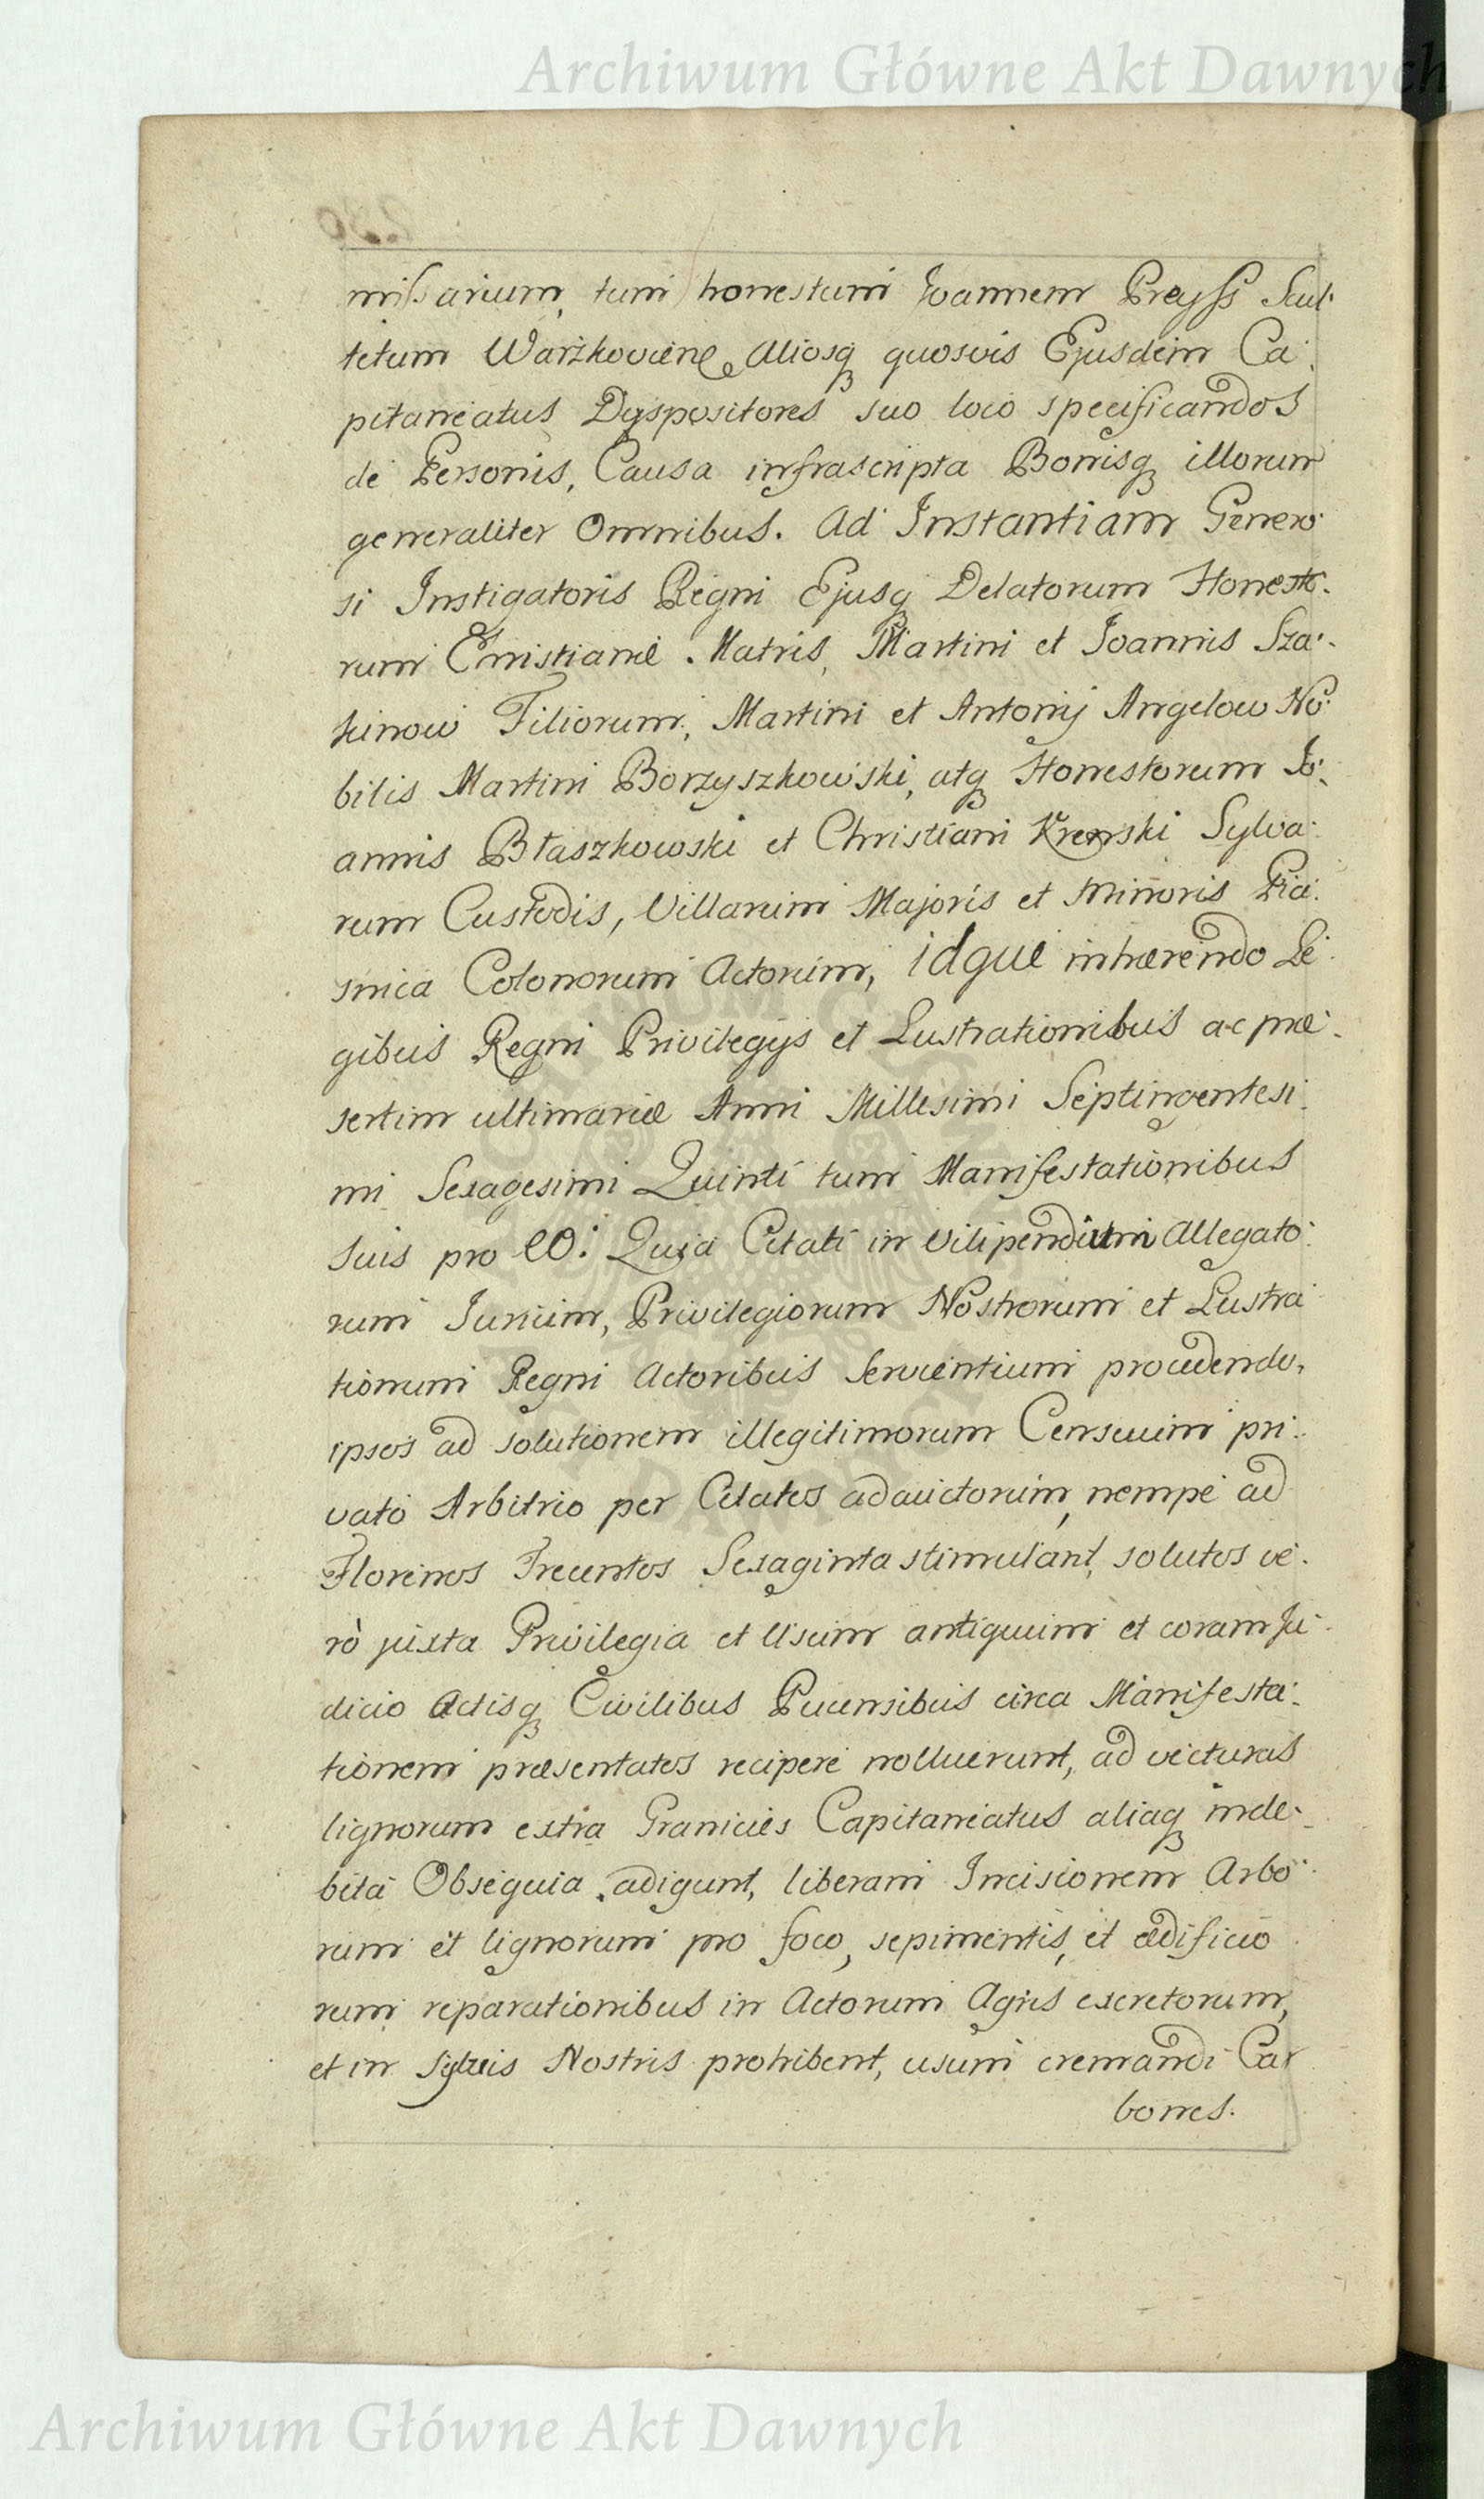 Archiwum Główne Akt Dawnych
missarium, tum honestum Joannem Preyss Scul-
tetum Warżkoviens aliosq quosvis Ejusdem Ca-
pitaneatus Dyspositores suo loco specificandos
de Personis, Causa infrascripta Bonisq illorum
generaliter Omnibus. Ad Instantiam Genero-
si Instigatoris Regni Ejusq Delatorum Honesto-
rum Christianæ Matris, Martini et Joannis Sza-
kinow Filiorum, Martini et Antonij Angelow No-
bilis Martini Borzyszkowski, atq Honestorum Jo-
annis Błaszkowski et Christiani Krenski Sylva-
rum Custodis, Villarum Majoris et Minoris Pia-
snica Colonorum Actorum, idque inhærendo Le-
gibus Regni Privilegijs et Lustrationibus ac præ-
sertim ultimariæ Anni Millesimi Septingentesi-
mi Sexagesimi Quinti tum Manifestationibus
suis pro eo: Quia Citati in vilipendium Allegato-
rum Jurium, Privilegiorum Nostrorum et Lustra-
tionum Regni Actoribus Servientium procedendo,
ipsos ad solutionem illegitimorum Censuum pri-
vato Arbitrio per Citatos adauctorum, nempe ad
Florenos Trecentos Sexaginta stimulant, solutos ve-
rò juxta Privilegia et Usum antiquum et coram Ju-
dicio Actisq Civilibus Pucensibus circa Manifesta-
tionem præsentatos recipere nolluerunt, ad vecturas
lignorum extra Granicies Capitaneatus aliaq inde-
bita Obsequia adigunt, liberam Incisionem Arbo-
rum et lignorum pro foco, sepimentis, et ædificio
rum reparationibus in Actorum Agris excretorum,
et in Sylvis Nostris prohibent, usum cremandi Car
bones.
Archiwum Główne Akt Dawnych